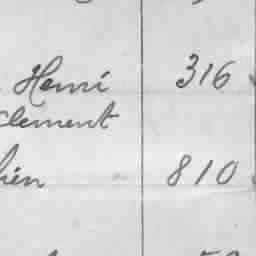 Henri 316
Clement
hien 810